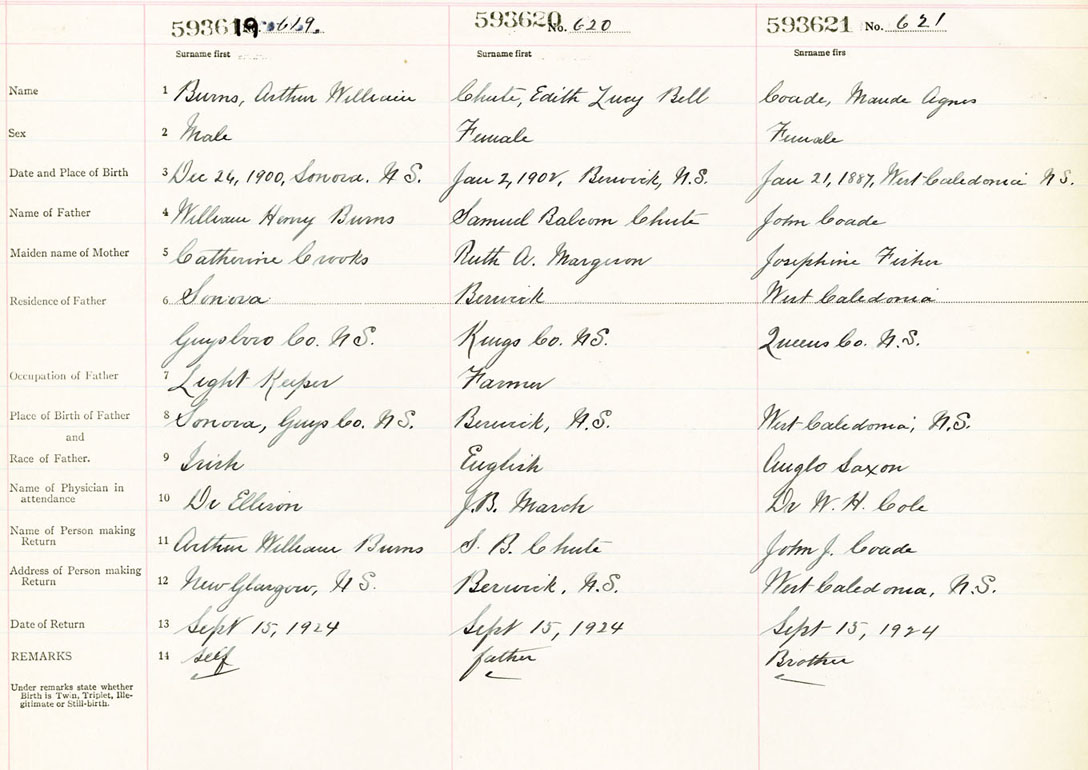 593619 No. 619. 593620 No. 620 593621 No. 621
Surname first Surname first Surname firs
Name 1 Burns, Arthur William Chute, Edith Lucy Bell Coade, Maude Agnes
Sex 2 Male Female Female
Date and Place of Birth 3 Dec 26, 1900, Sonora. N.S. Jan 2, 1902, Berwick, N.S. Jan 21, 1887, West Caledonia N.S.
Name of Father 4 William Henry Burns Samuel Balcom Chute John Coade
Maiden name of Mother 5 Catherine Crooks Ruth A. Margeson Josephine Fisher
Residence of Father 6 Sonora Berwick West Caledonia
Guysboro Co. N.S. Kings Co. N.S. Queens Co. N.S.
Occupation of Father 7 Light Keeper Farmer
Place of Birth of Father 8 Sonora, Guys Co. N.S. Berwick, N.S. West Caledonia, N.S.
and
Race of Father. 9 Irish English Anglo Saxon
Name of Physician in
attendance 10 Dr Ellison J.B. March Dr W. H. Cole
Name of Person making
Return 11 Arthur William Burns S. B. Chute John J. Coade
Address of Person making
Return 12 New Glasgow, N.S. Berwick, N.S. West Caledonia, N.S.
Date of Return 13 Sept 15, 1924 Sept 15, 1924 Sept 15, 1924
REMARKS 14 self father Brother
Under remarks state whether
Birth is Twin, Triplet, Ille-
gitimate or Still-birth.